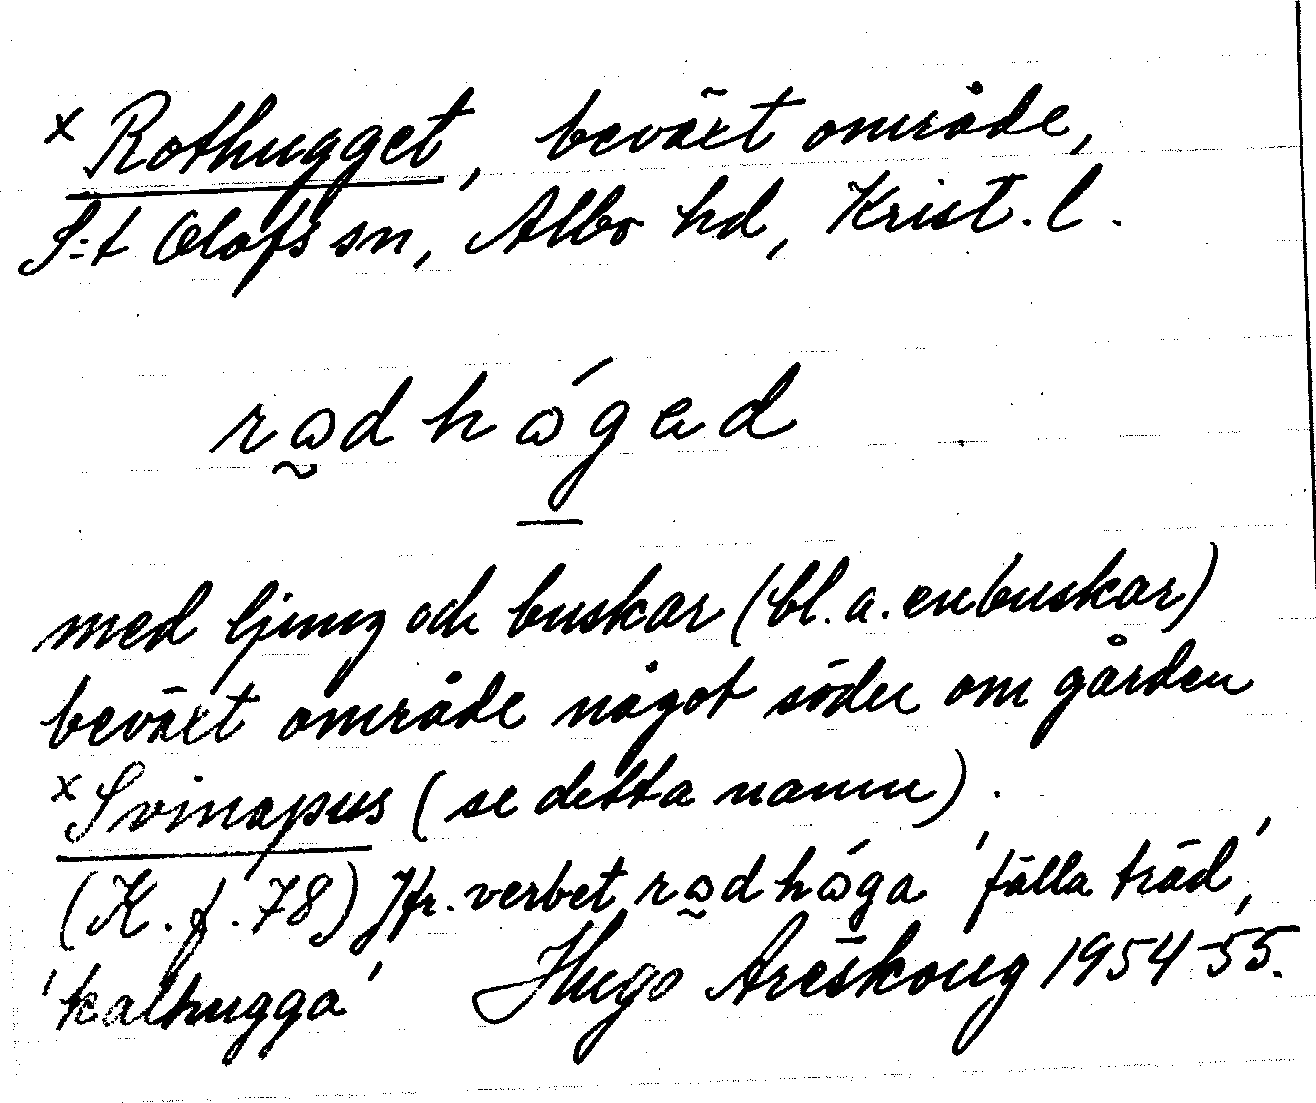 x Rothugget, beväxt område,
S:t Olofs sn, Albo hd, Krist. l.
rɷd hɷ́gad
med ljung och buskar (bl.a. enbuskar)
beväxt område något söder om gården
x Svinapus (se detta namn).
(K. f. 78) Jfr. verbet rɷd hɷ́ga 'fälla träd',
'kalhugga' Hugo Areskoug 1954-55.